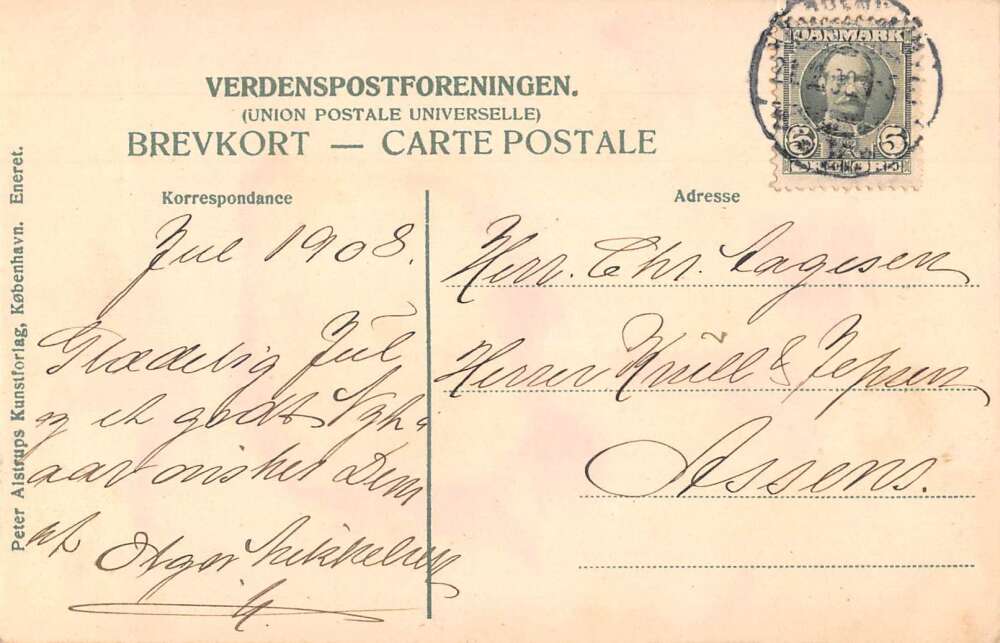 VERDENSPOSTFORENINGEN.
(UNION POSTALE UNIVERSELLE)
BREVKORT — CARTE POSTALE
DANMARK
5 5
ØRE
Korrespondance
Adresse
Jul 1908.
Glædelig Jul
og et godt Nyt
aar ønsker Dem
af
Mikkelsen
Herr. Chr. Aagesen
Herrer Krüll & Jepsen
Assens.
Peter Alstrups Kunstforlag, København. Eneret.